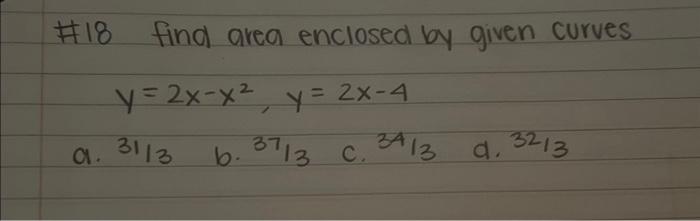 #18 find area enclosed by given curves
y = 2x-x², y = 2x-4
a. 31/3 b. 37/3 c. 34/3 d. 32/3